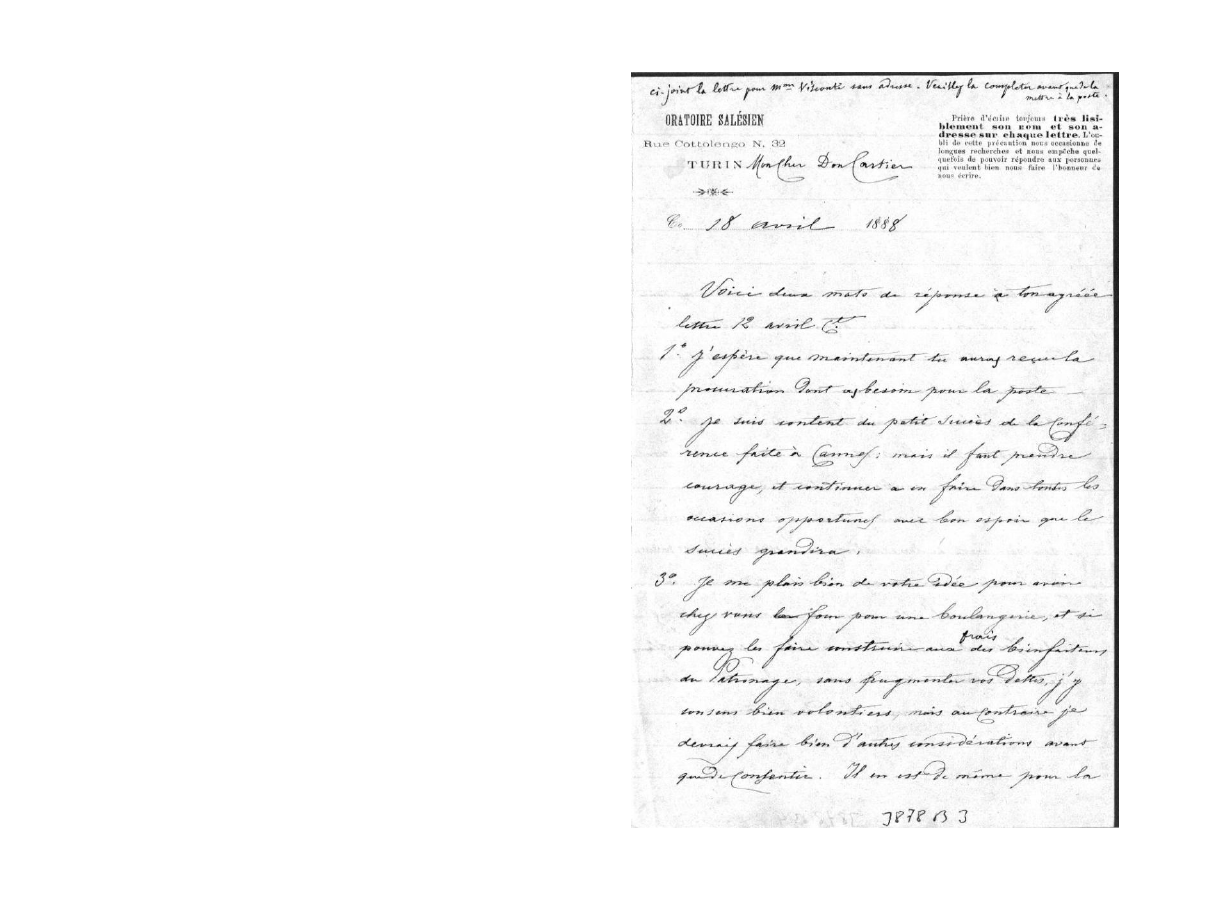 ci-joint la lettre pour mme Visconti sans adresse. Veuillez la completer avant que de la
mettre à la poste.
ORATOIRE SALÉSIEN
Rue Cottolengo N. 32
TURIN Mon Cher Don Cartier
Prière d'écrire toujours très lisi-
blement son nom et son a-
dresse sur chaque lettre. L'ou-
bli de cette précaution nous occasionne de
longues recherches et nous empêche quel-
quefois de pouvoir répondre aux personnes
qui veulent bien nous faire l'honneur de
nous écrire.
Ce 18 avril 1888
Voici deux mots de réponse à ton agréée
lettre 12 avril Ct.
1º. J'espère que maintenant tu auras reçue la
procuration dont as besoin pour la poste —
2º. Je suis content du petit succès de la Confé-
rence faite à Cannes: mais il faut prendre
courage, et continuer a en faire dans toutes les
occasions opportunes avec bon espoir que le
succès grandira.
3º. Je me plais bien de votre idée pour avoir
chez vous four pour une boulangerie, et si
pouvez les faire construire aux frais des bienfaiteurs
du Patronage, sans augmenter vos dettes, j'y
consens bien volontiers, mais au contraire je
devrais faire bien d'autres considérations avant
que de consentir. Il en est de même pour la
3878 B 3